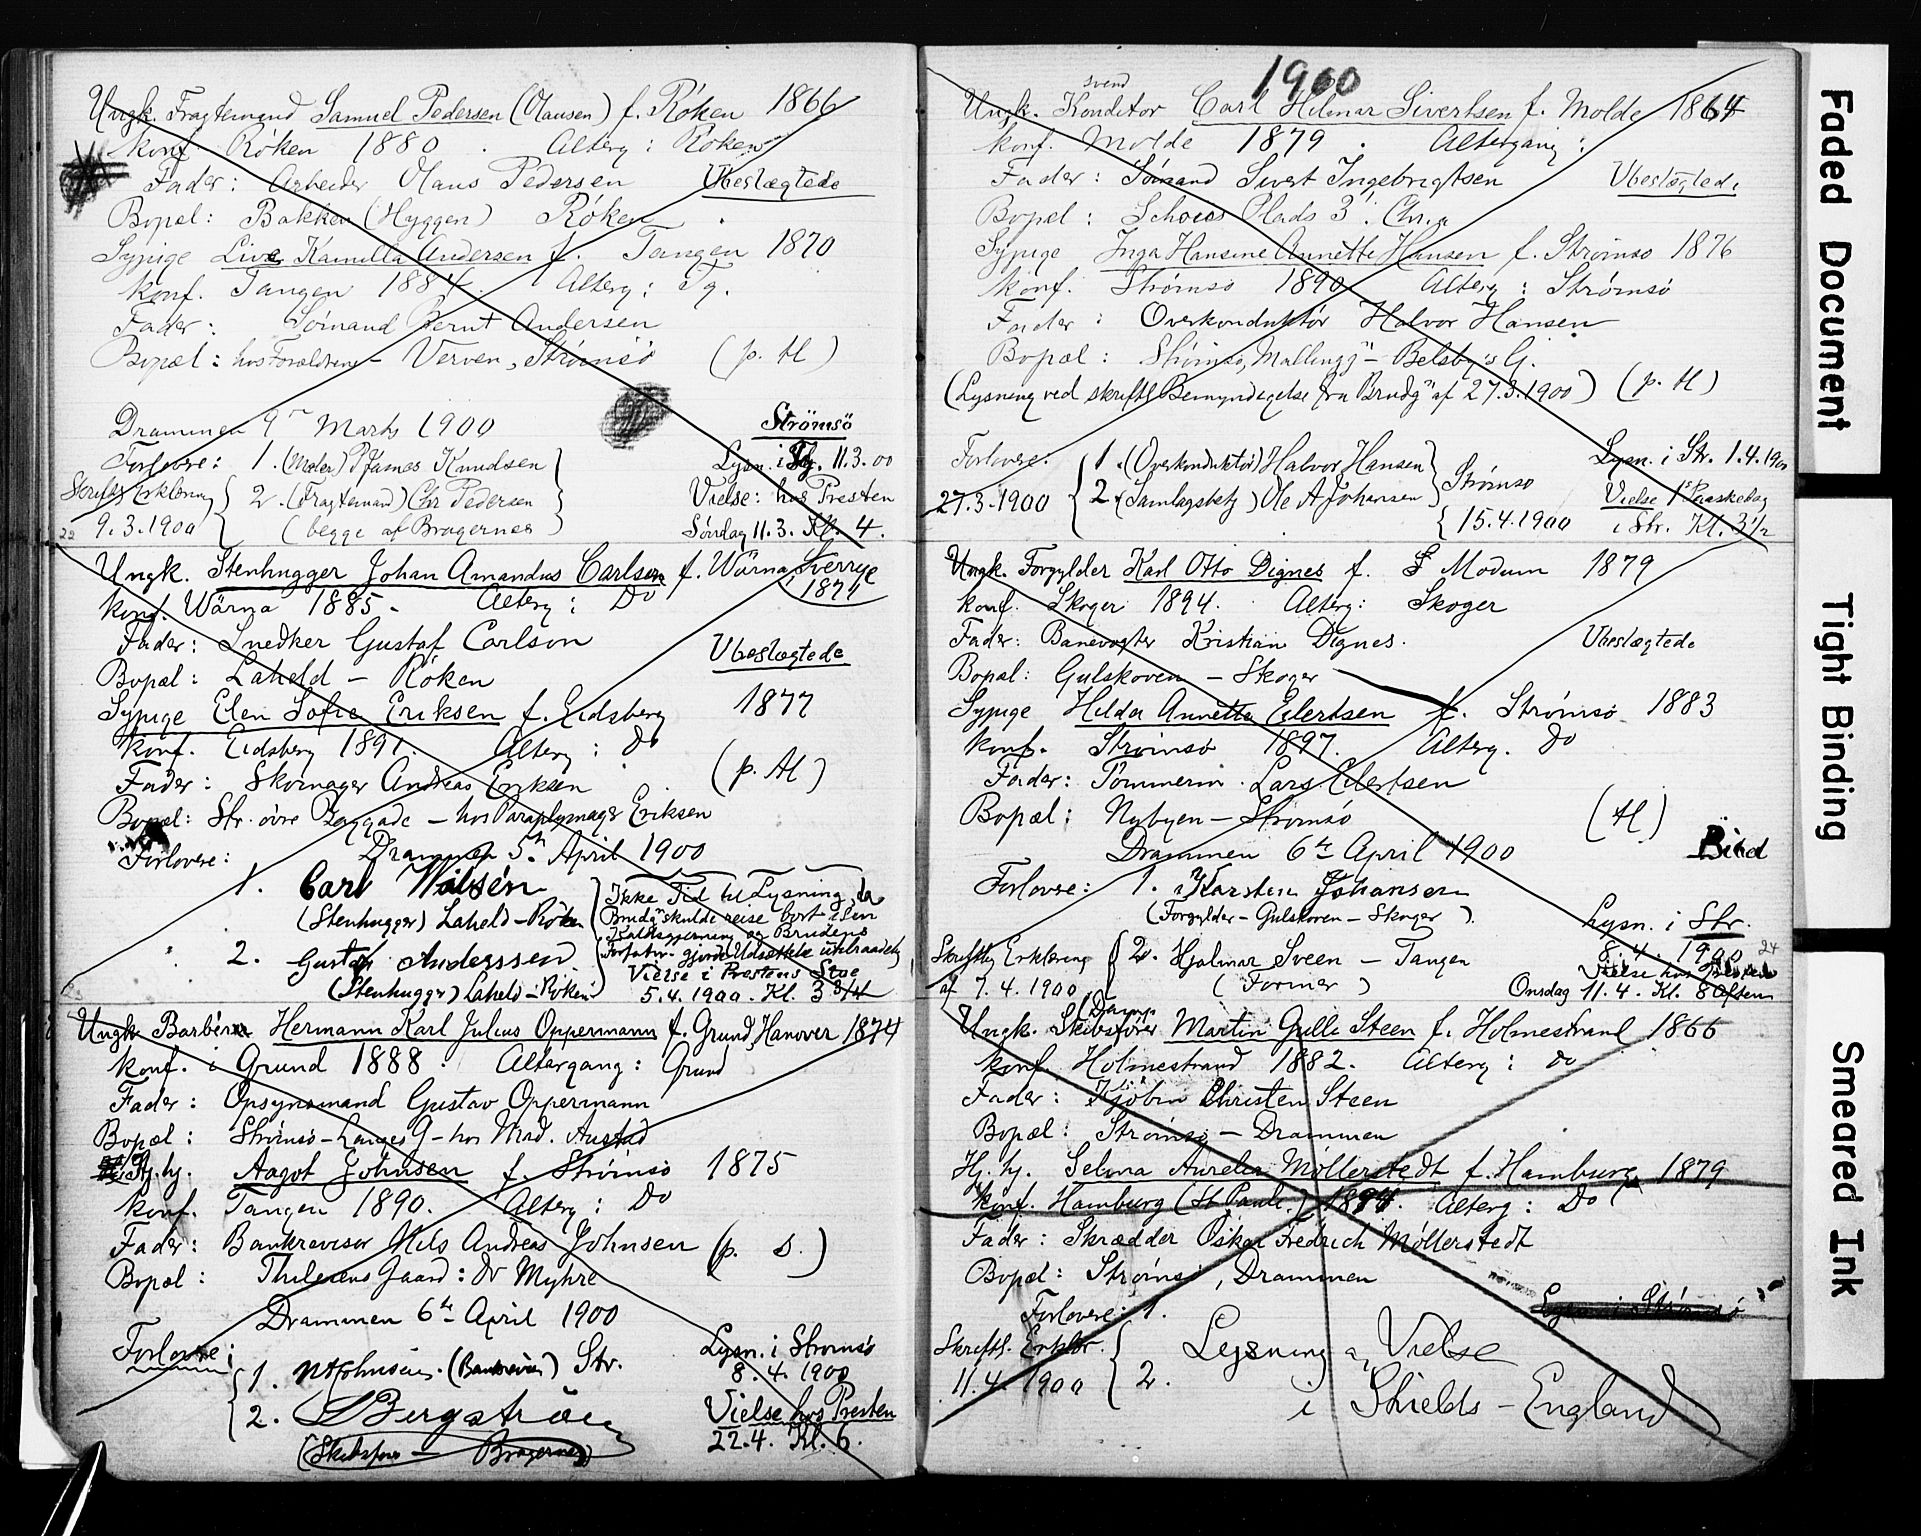 Ungk. Fragtemand Samuel Pedersen (Mausen) f. Røken 1866
konf. Røken 1880. Alterg: Røken
Fader: Arbeider Maus Pedersen Ubeslægtede
Bopæl: Bakken (Hyggen) Røken
Sypige Live Kamilla Andersen f. Tangen 1870
konf. Tangen 1884. Alterg: Tg.
Fader: Sømand Bernt Andersen
Bopæl: hos Forældrene - Verven, Strømsø (p. M)
Drammen 9 Marts 1900 Strömsö
Forlovere: 1. (Maler) James Knudsen Lysn. i Tg. 11.3.00
Skriftl. Erklæring 2. (Fragtemand) Chr Pedersen Vielse: hos Presten
9.3.1900 (begge af Bragernes) Søndag 11.3. Kl. 4.
22
Ungk. Stenhugger Johan Amandus Carlsen f. Wärna, Sverrige
konf. Wärna 1885. Alterg: Do 1871
Fader: Snedker Gustaf Carlson
Bopæl: Laheld - Røken Ubeslægtede
Sypige Elen Sofie Eriksen f. Eidsberg 1877
konf. Eidsberg 1891. Alterg: Do
Fader: Skomager Andreas Eriksen (p. M)
Bopæl: Str. övre Baggade - hos Paraplymager Eriksen
Drammen 5. April 1900
Forlovere:
1. Carl Nilsén Ikke Tid til Lysning, da
(Stenhugger) Laheld - Röken Brudg. skulde reise bort i sin
Kaldsgjerning og Brudens
2. Gustaf Anderssen Forfatn. gjorde Udsættelse utilraadelig
Vielse i Prestens Stue
(Stenhugger) Laheld - Röken 5.4.1900. Kl. 3 3/4
23
Ungk. Barbér Hermann Karl Julius Oppermann f. Grund, Hanover 1874
konf. i Grund 1888. Altergang: Grund
Fader: Opsynsmand Gustav Oppermann
Bopæl: Strømsø - Langes G - hos Mad. Austad
Hj. hj. Aagot Johnsen f. Strömsö 1875
konf. Tangen 1890. Alterg: Do
Fader: Bankrevisor Nils Andreas Johnsen (p. S.)
Bopæl: Thilesens Gaard: Dr Myhre
Drammen 6te April 1900
Forlovere: Lysn. i Strømsø
1. N Johnsen. (Bankrevisor) Str. 8.4.1900
2. Bergström Vielse hos Presten
(Skibsfører - Bragernes) 22.4. Kl. 6.
1900
svend
Ungk. Konditor Carl Hilmar Sivertsen f. Molde 1864
konf. Molde 1879. Altergang:
Fader: Sømand Sivert Ingebrigtsen Ubeslægtede
Bopæl: Schous Plads 3. Chr.a
Sypige Inga Hansine Annette Hansen f. Strømsø 1876
konf. Strømsø 1890 Alterg: Strømsø
Fader: Overkonduktör Halvor Hansen
Bopæl: Strømsø, Mallingg - Belsby's G.
(Lysning ved skriftl. Bemyndigelse fra Brudg. af 27.3.1900) (p. M)
Forlovere. 1. (Overkonduktör) Halvor Hansen Strømsø Lysn. i Str. 1.4.1900
27.3.1900 2. (Samlagsbetj) Ole A Johansen Vielse 1st Paaskedag
15.4.1900 i Str. Kl. 3 1/2
Ungk. Forgylder Karl Otto Dignes f. Modum 1879
konf. Skoger 1894. Alterg: Skoger
Fader: Banevogter Kristian Dignes. Ubeslægtede
Bopæl: Gulskoven - Skoger
Sypige Hilda Annette Eilertsen f. Strømsø 1883
konf. Strømsø 1897. Alterg. Do
Fader: Tömmerm. Lars Eilertsen
Bopæl: Nybyen - Strømsö (M)
Drammen 6te April 1900
Forlovere: 1. Karsten Johansen
(Forgylder - Gulskoven - Skoger) Lysn. i Str.
Skriftlig Erklæring 2. Hjalmar Sveen - Tangen 8.4.1900 24
af 7.4.1900 (Former) Vielse hos Presten
Onsdag 11.4. Kl. 8 Aften
Damp
Ungk. Skibsfører Martin Gulle Steen f. Holmestrand 1866
konf. Holmestrand 1882. Alterg: Do
Fader: Kjöbm Christen Steen
Bopæl: Strømsø - Drammen
Hj. hj. Selma Aurelia Møllerstedt f. Hamburg 1879
konf. Hamburg (St. Pauli) 1894. Alterg: Do
Fader: Skrædder Oskar Fredrich Møllerstedt
Bopæl: Strømsø, Drammen
Forlovere: 1. Lysn. i Strömsö
Skriftl. Erklær. Lysning og Vielse
11.4.1900 2. i Shields - England
Faded Document
Tight Binding
Smeared Ink